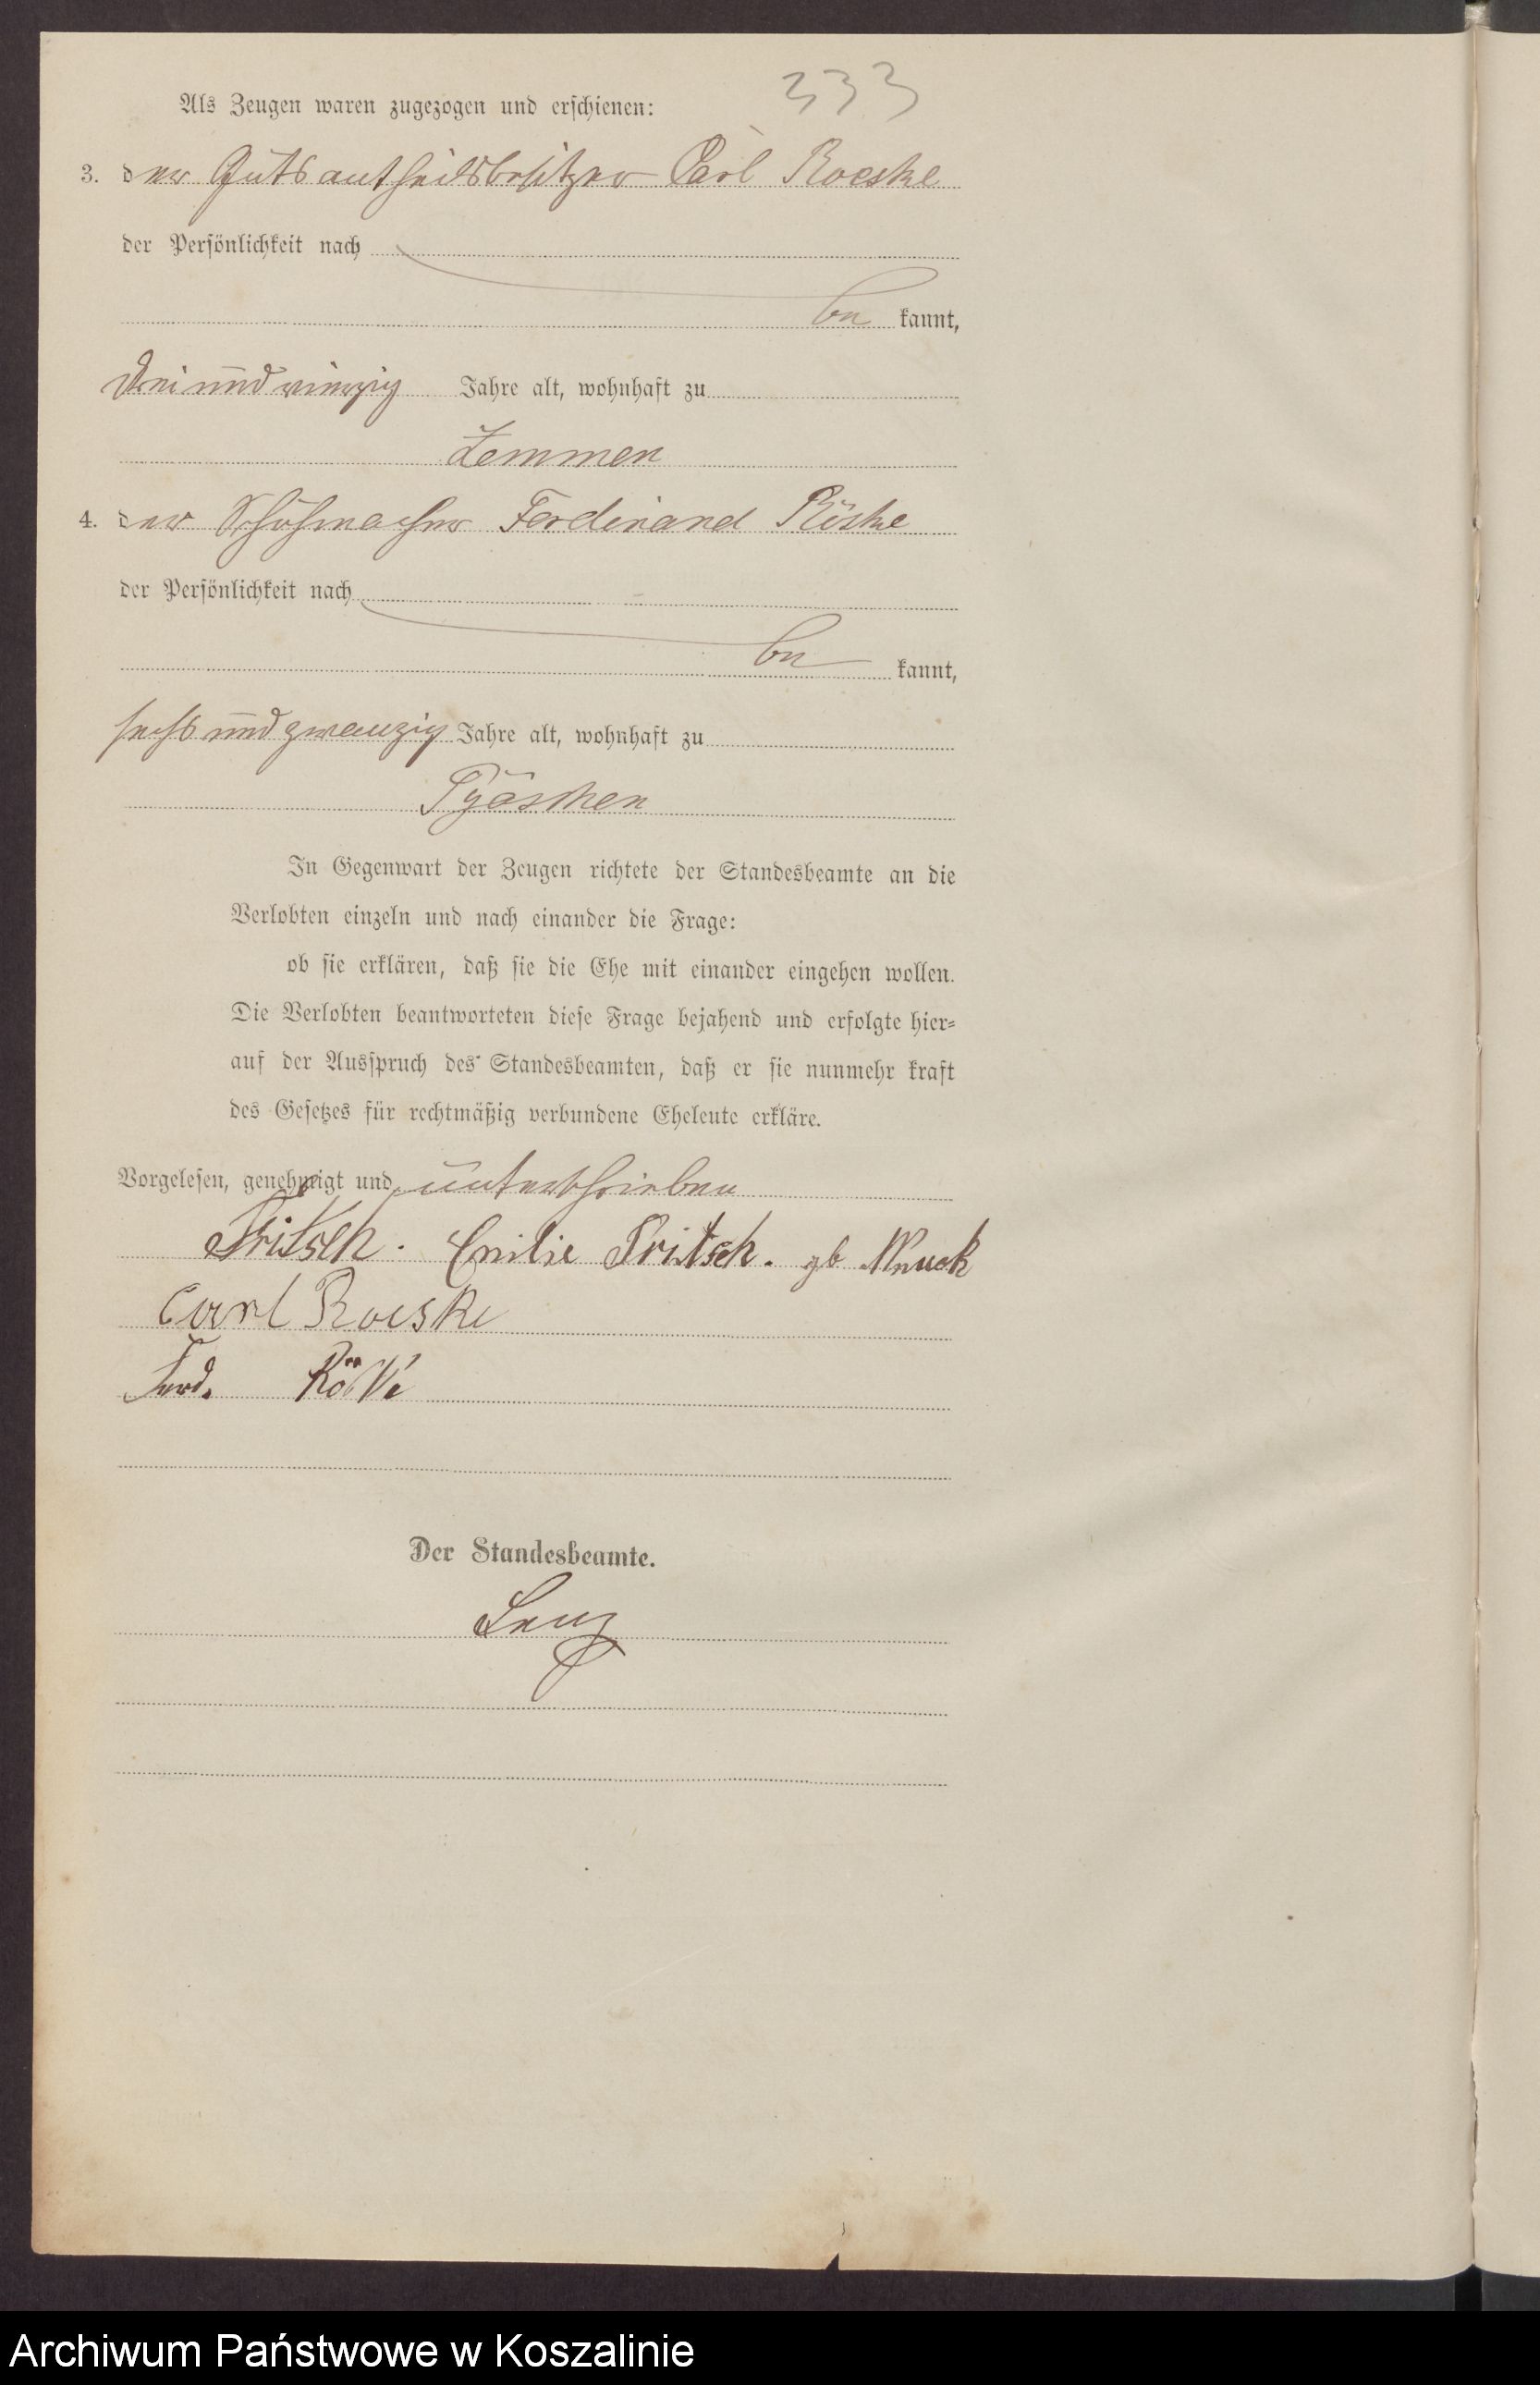 333
Als Zeugen waren zugezogen und erschienen:
3. der Gutsantheilsbesitzer Carl Roeske
der Persönlichkeit nach
be kannt,
drei und vierzig Jahre alt, wohnhaft zu
Zemmen
4. der Schuhmacher Ferdinand Röske
der Persönlichkeit nach
be kannt,
sechs und zwanzig Jahre alt, wohnhaft zu
In Gegenwart der Zeugen richtete der Standesbeamte an die
Verlobten einzeln und nach einander die Frage:
ob sie erklären, daß sie die Ehe mit einander eingehen wollen.
Die Verlobten beantworteten diese Frage bejahend und erfolgte hier-
auf der Ausspruch des Standesbeamten, daß er sie nunmehr kraft
des Gesetzes für rechtmäßig verbundene Eheleute erkläre.
Vorgelesen, genehmigt und unterschrieben
Fritsch. Emilie Fritsch. gb Wnuck
Carl Roeske
Ferd. Röske
Der Standesbeamte.
Lenz
Archiwum Państwowe w Koszalinie